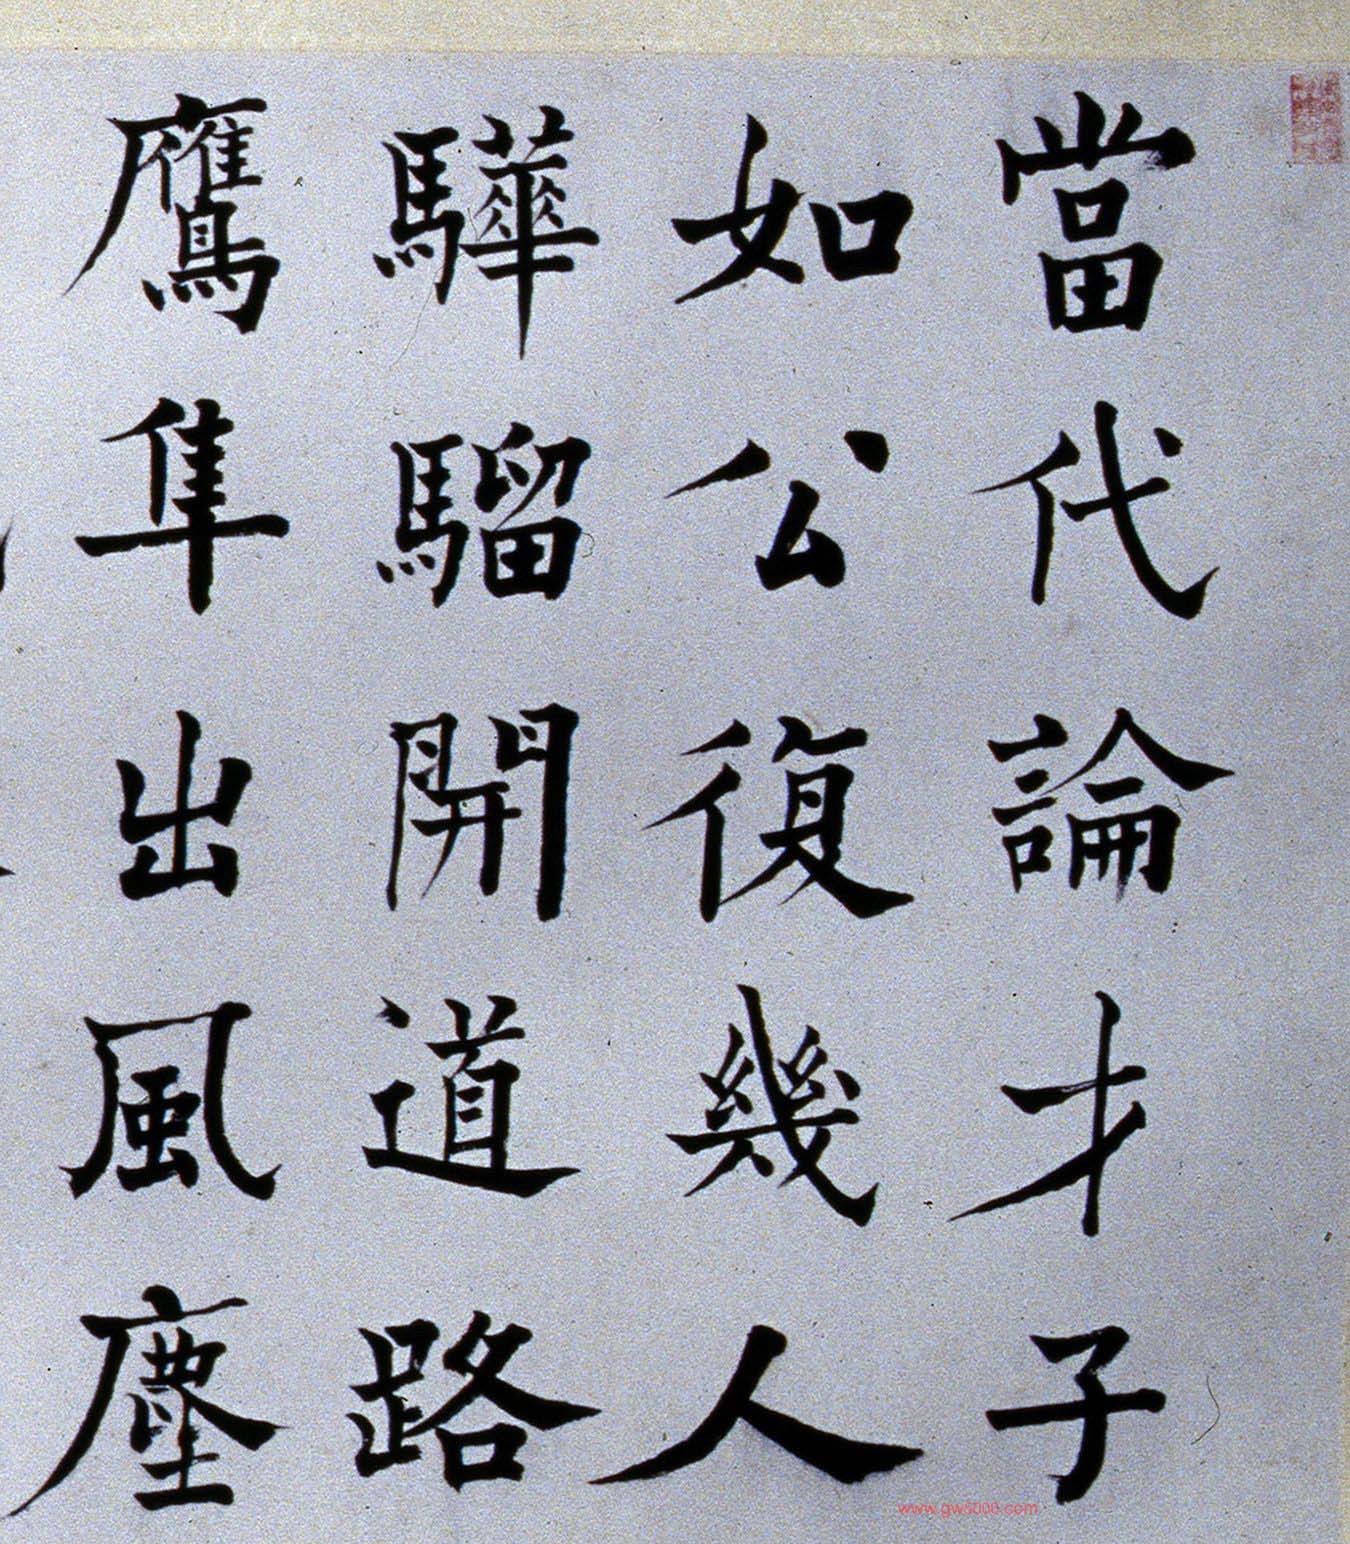 當代論才子
如公復幾人
驊騮開道路
鷹隼出風塵
www.gw5000.com